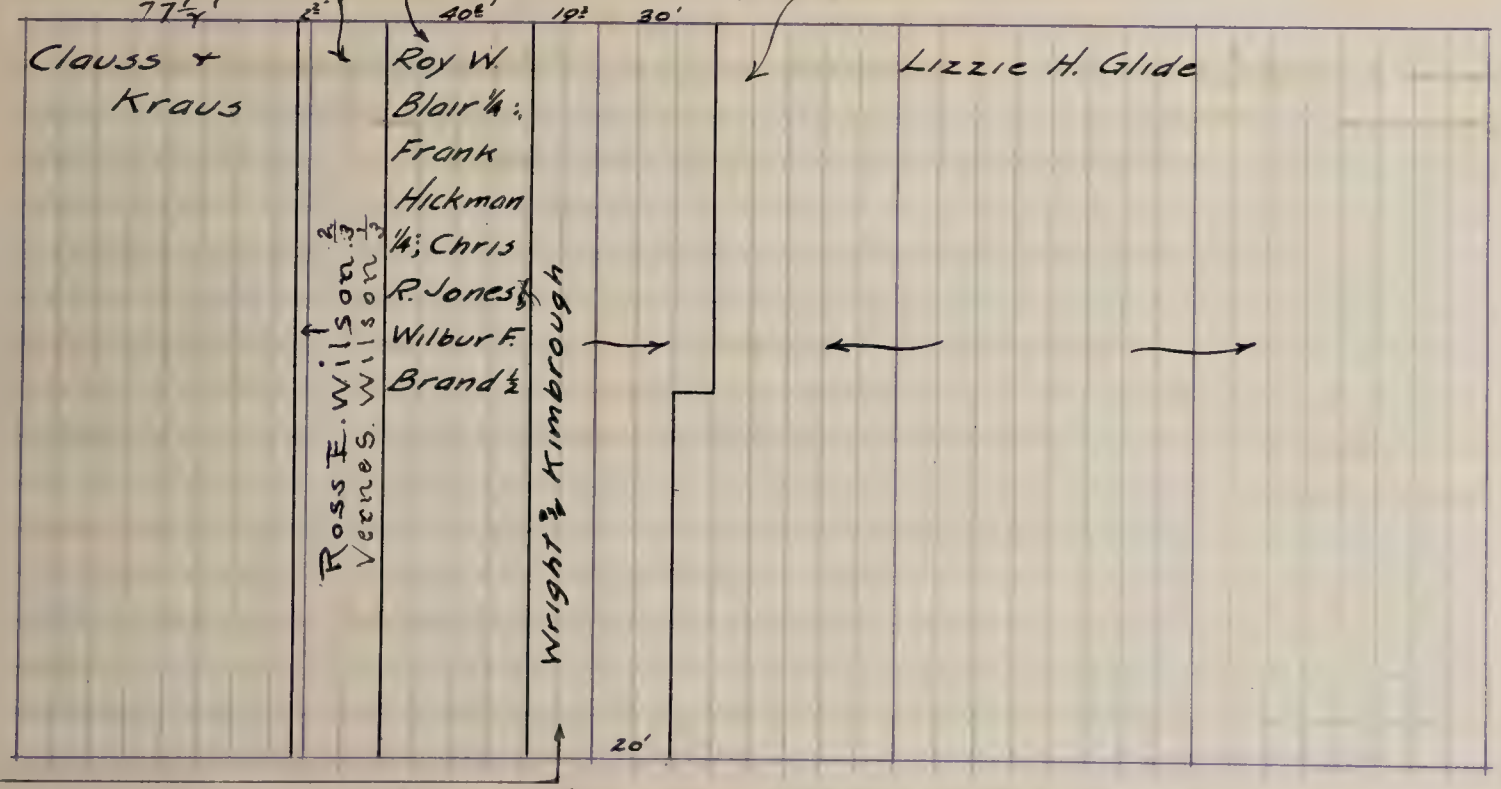 40
30'
Clauss +
Kraus
Ross E. Wilson 2/3
Verne S. Wilson 1/3
Roy W.
Blair 1/4;
Frank
Hickman
1/4; Chris
R. Jones
Wilbur F.
Brand 1/2
Wright & Kimbrough
Lizzie H. Glide
20'